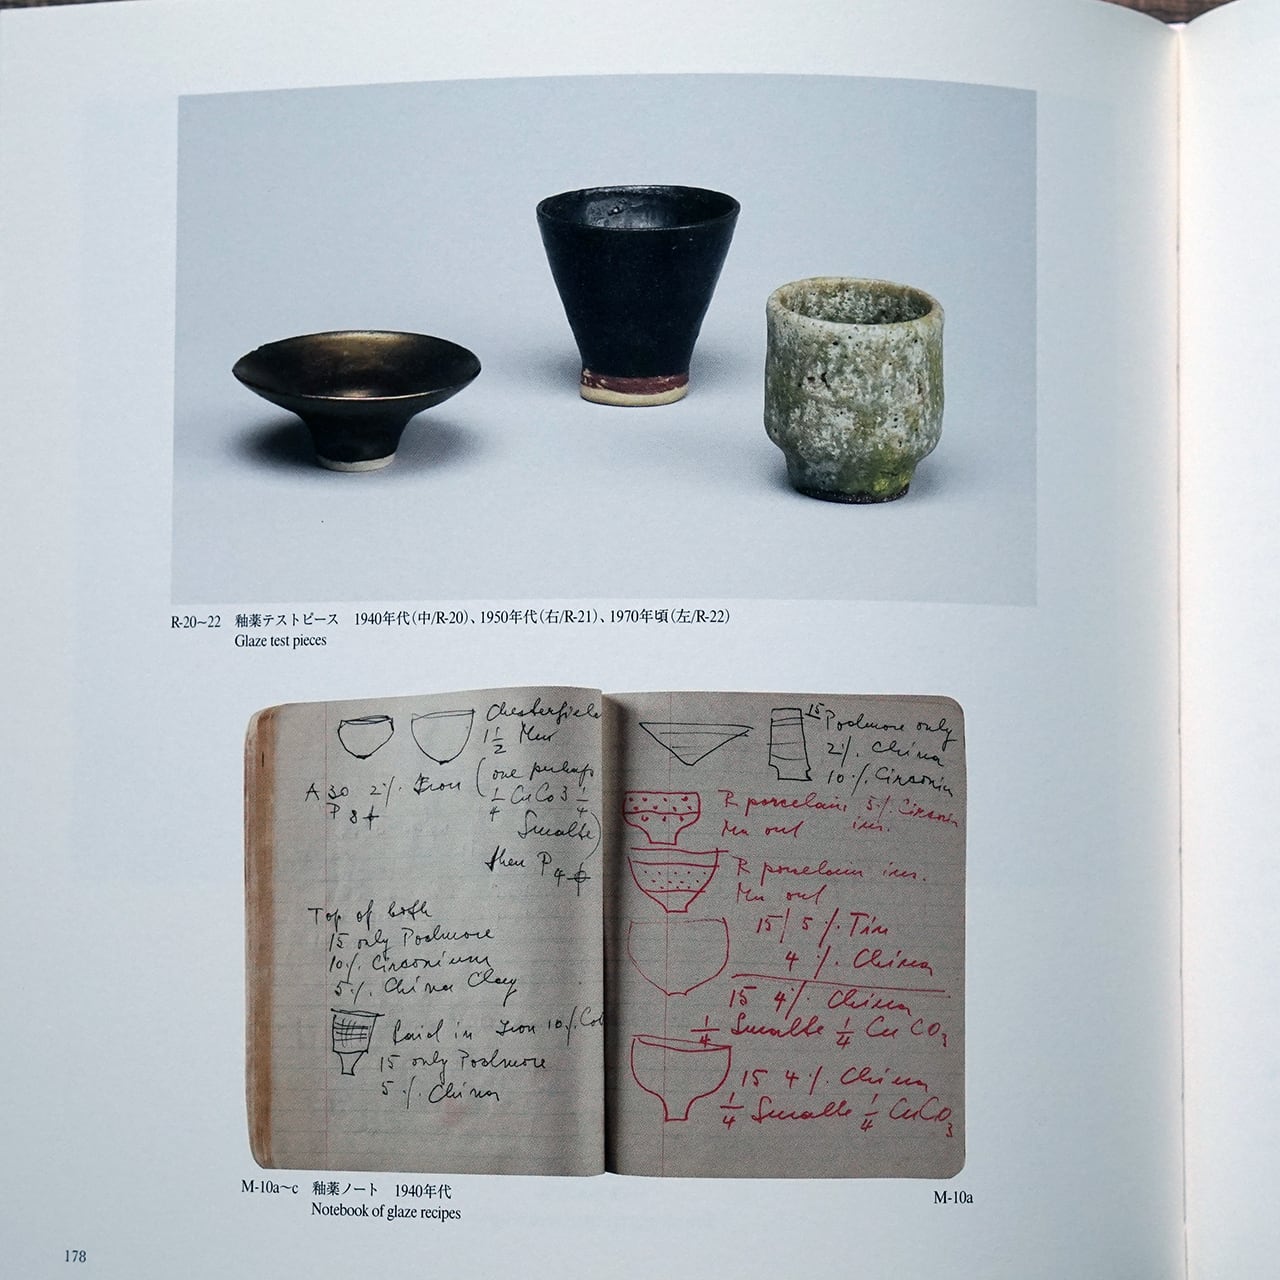 R-20~22 釉薬テストピース 1940年代(中/R-20)、1950年代(右/R-21)、1970年頃(左/R-22)
Glaze test pieces
Chesterfield
1 1/2 Mn
A 30 2% Iron (one perhaps
P 8 1/4 CuCO3 1/4
Smalte)
then P 4
Top of both
15 only Podmore
10% Circonium
5% China Clay
Laid in Iron 10%
15 only Podmore
5% China
15 Podmore only
2% China
10% Circonium
R porcelain 5% Circonium
Mn out ins.
R porcelain ins.
Mn out
15/ 5% Tin
4% China
15 4% China
1/4 Smalte 1/4 CuCO3
15 4% China
1/4 Smalte 1/4 CuCO3
M-10a~c 釉薬ノート 1940年代
Notebook of glaze recipes
M-10a
178